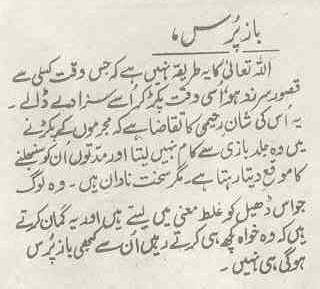 باز پُرس ،
اللہ تعالیٰ کا یہ طریقہ نہیں ہے کہ جس وقت کسی سے
قصور سرزد ہو اُسی وقت پکڑ کر اُسے سزا دے ڈالے ۔
یہ اُس کی شان رحیمی کا تقاضا ہے کہ مجرموں کے پکڑنے
میں وہ جلد بازی سے کام نہیں لیتا اور مدتوں اُن کو سنبھلنے
کا موقع دیتا رہتا ہے ۔ مگر سخت نادان ہیں ۔ وہ لوگ
جو اس ڈھیل کو غلط معنی میں لیتے ہیں اور یہ گمان کرتے
ہیں کہ وہ خواہ کچھ ہی کرتے رہیں اُن سے کبھی باز پُرس
ہوگی ہی نہیں ۔